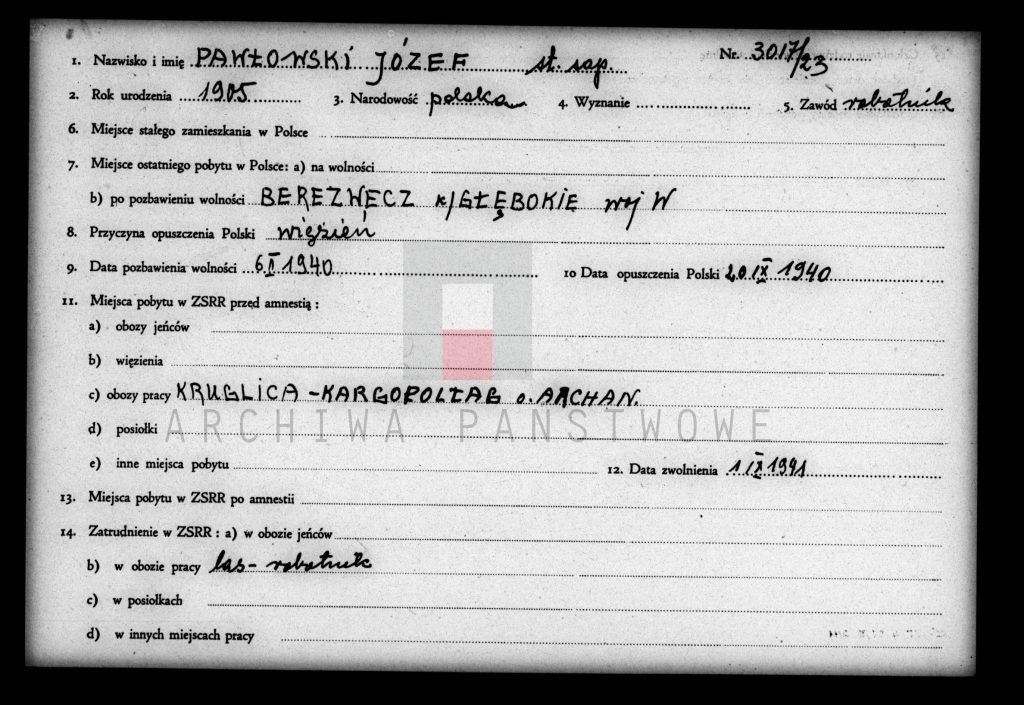 1. Nazwisko i imię PAWŁOWSKI JÓZEF st. sap. Nr. 3017/23
2. Rok urodzenia 1905 3. Narodowość polska 4. Wyznanie 5. Zawód robotnik
6. Miejsce stałego zamieszkania w Polsce
7. Miejsce ostatniego pobytu w Polsce: a) na wolności
b) po pozbawieniu wolności BEREZWECZ k/GŁĘBOKIE woj W
8. Przyczyna opuszczenia Polski więzień
9. Data pozbawienia wolności 6 I 1940 10 Data opuszczenia Polski 20 IX 1940
11. Miejsca pobytu w ZSRR przed amnestią :
a) obozy jeńców
b) więzienia
c) obozy pracy KRUGLICA - KARGOPOLŁAG o. ARCHAN.
ARCHIWA PAŃSTWOWE
d) posiołki
e) inne miejsca pobytu 12. Data zwolnienia 1 IX 1941
13. Miejsca pobytu w ZSRR po amnestii
14. Zatrudnienie w ZSRR : a) w obozie jeńców
b) w obozie pracy las - robotnik
c) w posiołkach
d) w innych miejscach pracy